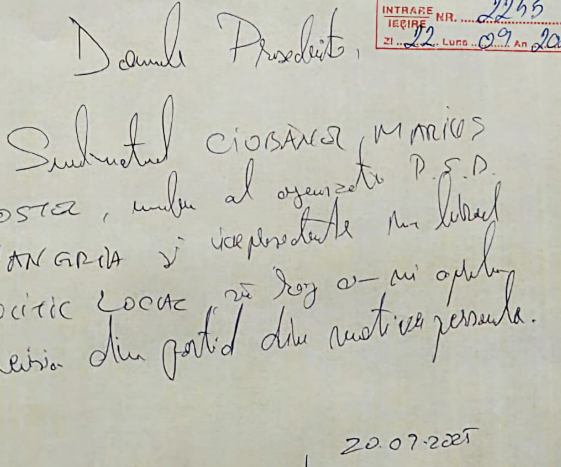 INTRARE
IEȘIRE NR. 2255
ZI 22 Luna 09 An 20
Domnule Președinte,
Subsemnatul CIOBĂNEL MARIUS
membru al organizației P.S.D.
ANGRIA și vicepreședinte în biroul
POLITIC LOCAL, vă rog a-mi aproba
demisia din partid din motive personale.
20.09.2025